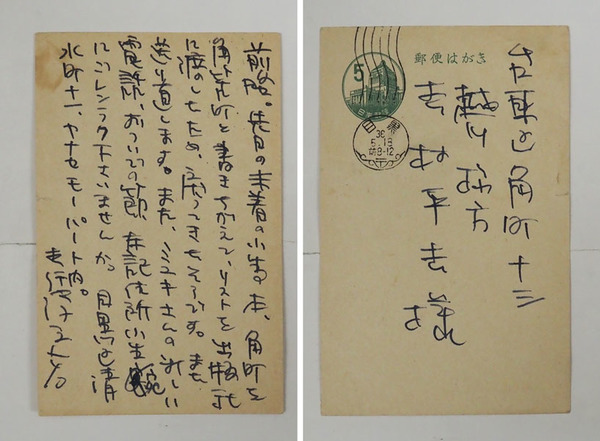 前略。先日の未着の小生の本、角町を
角筈町と書きちがえて、リストを出版社
に渡したため、戻ってきたそうです。また
送り直します。また、ミユキさんの新しい
電話、おついでの節、左記住所小生宛
にごレンラク下さいませんか。目黒区清
水町十一、ヤナセモーパート内。
郵便はがき
5
目黒
36
5.18
前8-12
台東区角町十三
越川 方
吉村平吉様